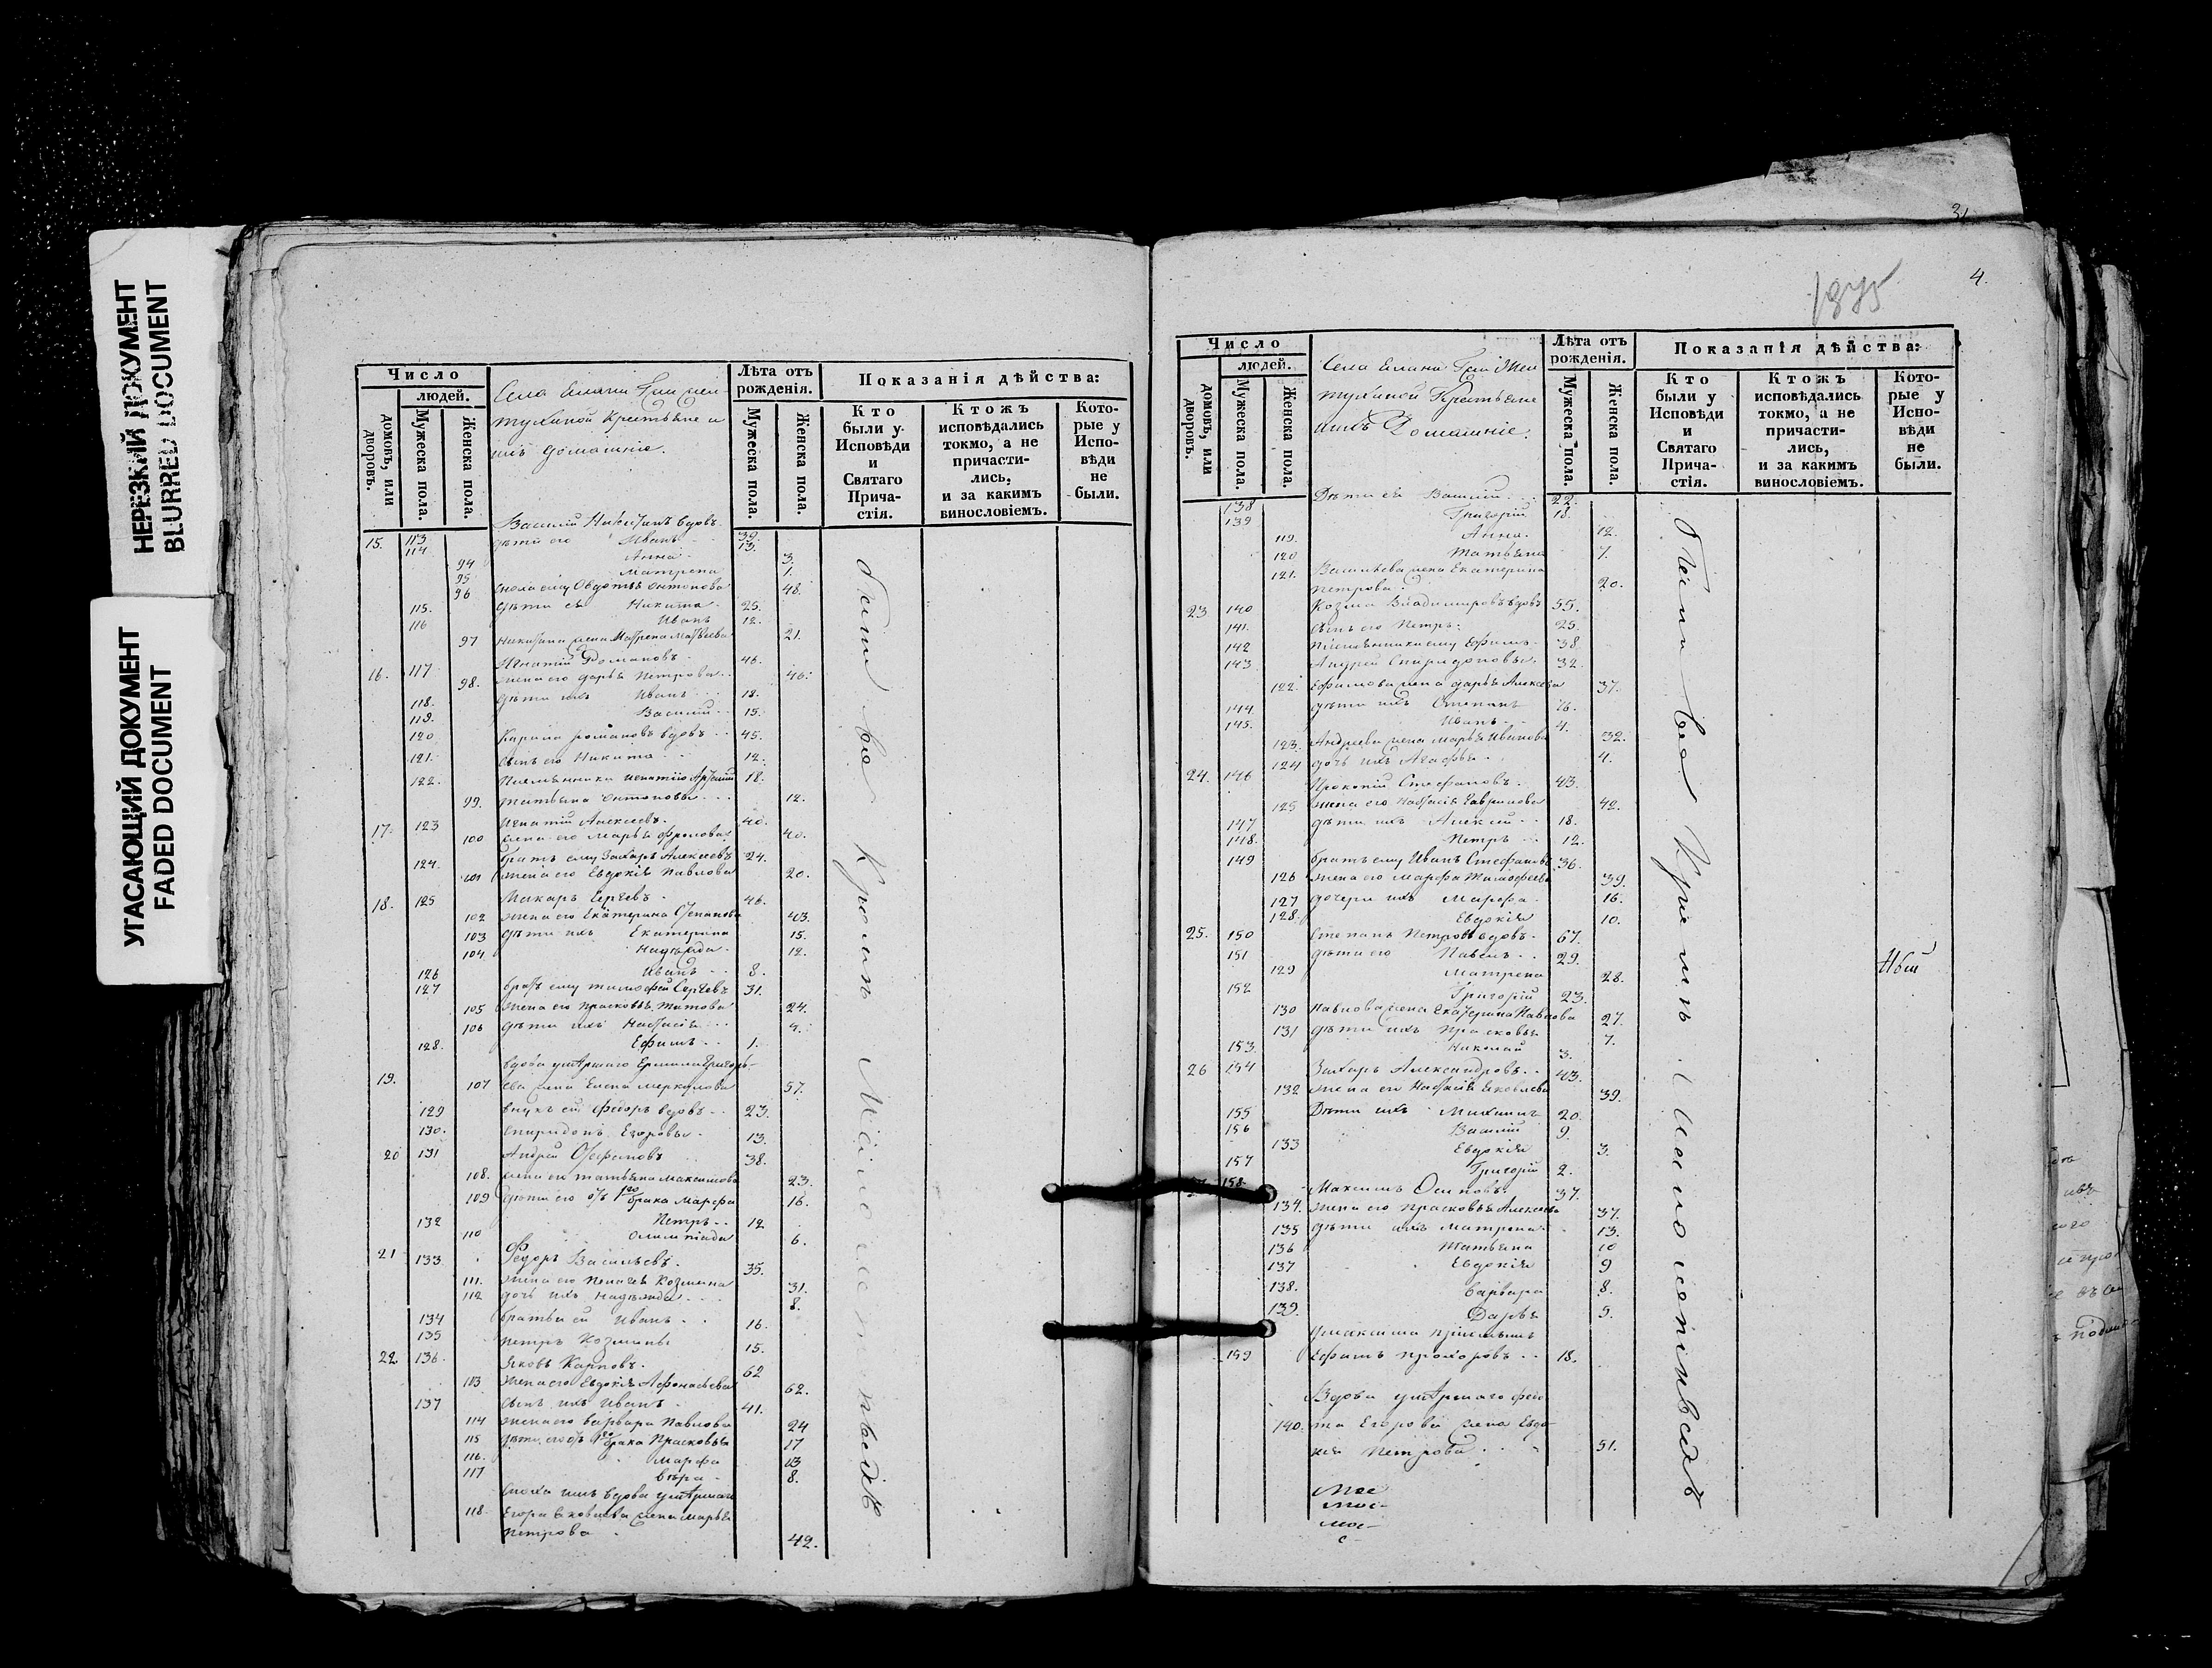 НЕРЕЗКИЙ ДОКУМЕНТ
BLURRED DOCUMENT
УГАСАЮЩИЙ ДОКУМЕНТ
FADED DOCUMENT
Число
людей.
домовъ, или дворовъ.
Мужеска пола.
Женска пола.
Села
тулиной Крестьяне и
ихъ домашніе.
Лѣта отъ рожденія.
Мужеска пола.
Женска пола.
Показанія дѣйства:
Кто были у Исповѣди и Святаго Причастія.
Ктожъ исповѣдались токмо, а не причастились, и за какимъ винословіемъ.
Которые у Исповѣди не были.
Василій Никитинъ вдовъ
15. 113 39.
114 дѣти его Иванъ 13.
94 Анна 3.
95 Матрена 1.
96 Антонова 48.
115. дѣти ея Никита 25.
116 Иванъ 12.
97 Никитина жена Матрена Матвеева 21.
16. 117 Игнатій Романовъ 46.
98. жена его Дарья Петрова 46.
118. дѣти ихъ Иванъ 18.
119. Василій 15.
120 Романовъ вдовъ 45.
121. сынъ его Никита 12.
122. Племянники Игнатію 18.
99. Татьяна Антоновы 12.
17. 123 Игнатій Алексеевъ. 40.
100 жена его Марья Фролова 40.
124. братъ ему Захаръ Алексеевъ 24.
101 жена его Евдокія Павлова 20.
18. 125 Макаръ Сергеевъ 46.
102 жена его Екатерина Степанова 43.
103 дѣти ихъ Екатерина 15.
104 Надежда 12.
126 Иванъ 8.
127 братъ ему Тимофей Сергеевъ 31.
105 жена его Прасковья Титова 24.
106 дѣти ихъ Настасія 4.
128. Ефимъ 1.
вдова умершаго Ермила Григорь-
19. 107 ева жена Елена Меркулова 57.
129 внукъ ей Федоръ вдовъ 23.
130. Спиридонъ Егоровы 13.
20 131 Андрей Стефановъ 38.
108. жена его Татьяна Максимова 23.
109 дѣти его отъ 1го брака Марфа 16.
132 Петръ 12
110 Олимпіада 6.
21 133 Федоръ Васильевъ. 35.
111. жена его Пелагея Козмина 31.
112 дочь ихъ Надежда 8.
134 братья ей Иванъ 16.
135 Петръ Козмины 15.
22. 136. Яковъ Карповъ. 62
113 жена его Евдокія Афонасьева 62.
137 сынъ ихъ Иванъ 41.
114 жена его Варвара Павлова 24
115 дѣти его отъ 1го брака Прасковья 17
116. Марфа 13
117 Вѣра 8.
Сноха имъ вдова умершаго
118. Егора Яковлева жена Марья
Петрова 42.
были все кроме
1875
4.
Число
людей.
домовъ, или дворовъ.
Мужеска пола.
Женска пола.
Села
тулиной Крестьяне
ихъ Домашніе.
Лѣта отъ рожденія.
Мужеска пола.
Женска пола.
Показанія дѣйства:
Кто были у Исповѣди и Святаго Причастія.
Ктожъ исповѣдались токмо, а не причастились, и за какимъ винословіемъ.
Которые у Исповѣди не были.
138 Дѣти ея Василій 22.
139 Григорій 18.
119. Анна 12.
120 Татьяна 7.
121. Васильева жена Екатерина
Петрова 20.
23 140 Козма Владимировъ вдовъ 55.
141. сынъ его Петръ 25.
142 племянники ему Ефимъ 38.
143. Андрей Спиридоновы 32.
122. Ефимова жена Дарья Алексеева 37.
144. дѣти ихъ Степанъ 16.
145. Иванъ 4.
123. Андреева жена Марья Иванова 32.
124 дочь ихъ Агафья 4.
24. 146 Прокопій Стефановъ 43.
125 жена его Настасія Гаврилова 42.
147 дѣти ихъ Алексей 18.
148. Петръ 12.
149 братъ ему Иванъ Стефановъ 36.
126 жена его Марфа Тимофеева 39.
127 дочери ихъ Марфа 16.
128. Евдокія 10.
25. 150 Степанъ Петровъ вдовъ 67.
151 дѣти его Павелъ 29.
129 Матрена 28.
152 Григорій 23.
130 Павлова жена Екатерина Павлова 27.
131 дѣти ихъ Прасковья 7.
153. Николай 3.
26 154 Захаръ Александровъ 43.
132 жена его Настасія Яковлева 39.
155 Дѣти ихъ Михаилъ 20.
156 Василій 9.
133 Евдокія 3.
157 Григорій 2.
27 158 Максимъ Осиповъ 37.
134. жена его Прасковья Алексеева 37.
135 дѣти ихъ Матрена 13.
136 Татьяна 10
137 Евдокія 9
138. Варвара 8.
139. Дарья 5.
у Максима пріемышъ
159 Ефимъ Прохоровъ 18.
Вдова умершаго Федо-
140. та Егорова жена Евдо-
кія Петрова 51.
были все